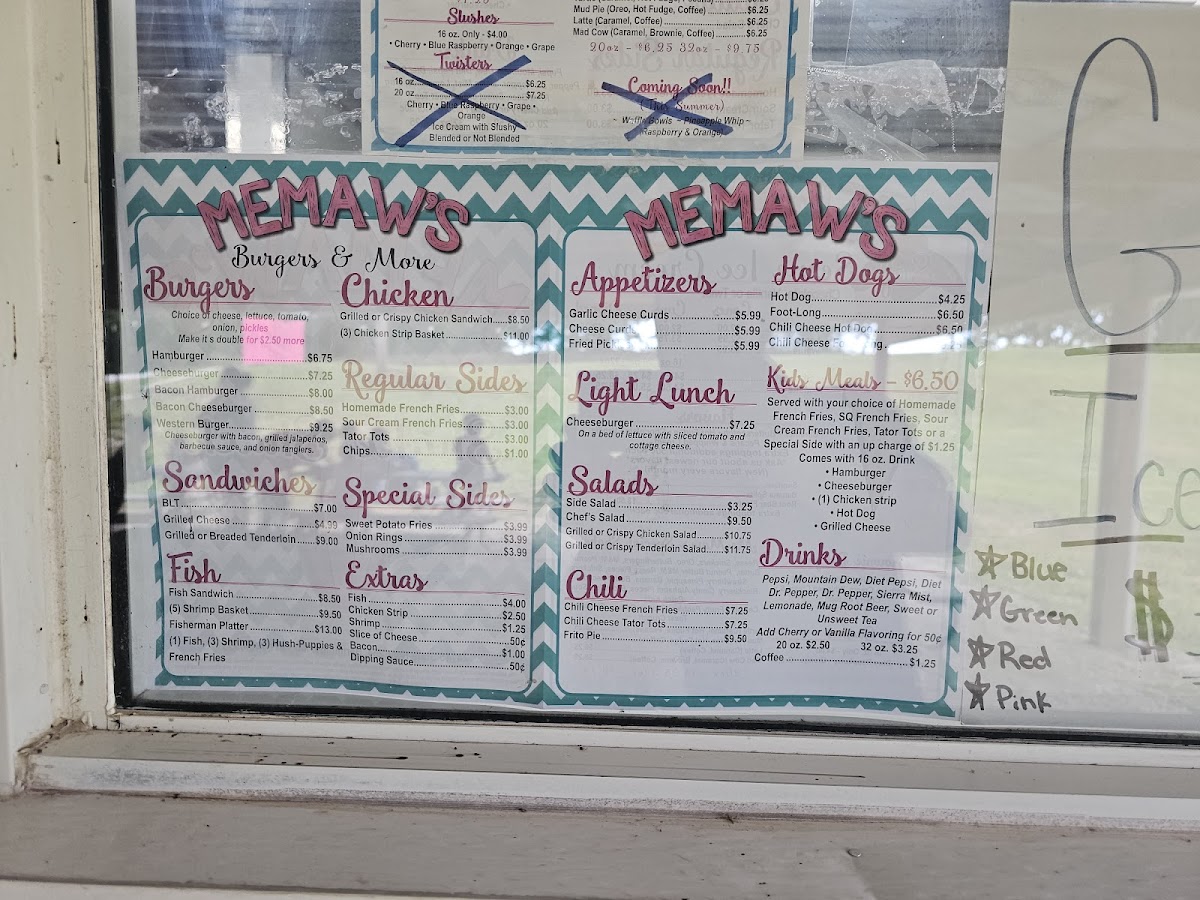 Slushes
16 oz. Only - $4.00
• Cherry • Blue Raspberry • Orange • Grape
Twisters
16 oz. $6.25
20 oz. $7.25
Cherry • Blue Raspberry • Grape •
Orange
Ice Cream with Slushy
Blended or Not Blended
Mud Pie (Oreo, Hot Fudge, Coffee) $6.25
Latte (Caramel, Coffee) $6.25
Mad Cow (Caramel, Brownie, Coffee) $6.25
20oz - $6.25 32oz - $9.75
Coming Soon!!
(This Summer)
~ Waffle Bowls ~ Pineapple Whip ~
(Raspberry & Orange)
MEMAW'S
Burgers & More
Burgers
Choice of cheese, lettuce, tomato,
onion, pickles
Make it s double for $2.50 more
Hamburger $6.75
Cheeseburger $7.25
Bacon Hamburger $8.00
Bacon Cheeseburger $8.50
Western Burger $9.25
Cheeseburger with bacon, grilled jalapeños,
barbecue sauce, and onion tanglers.
Sandwiches
BLT $7.00
Grilled Cheese $4.99
Grilled or Breaded Tenderloin $9.00
Fish
Fish Sandwich $8.50
(5) Shrimp Basket $9.50
Fisherman Platter $13.00
(1) Fish, (3) Shrimp, (3) Hush-Puppies &
French Fries
Chicken
Grilled or Crispy Chicken Sandwich $8.50
(3) Chicken Strip Basket $11.00
Regular Sides
Homemade French Fries $3.00
Sour Cream French Fries $3.00
Tator Tots $3.00
Chips $1.00
Special Sides
Sweet Potato Fries $3.99
Onion Rings $3.99
Mushrooms $3.99
Extras
Fish $4.00
Chicken Strip $2.50
Shrimp $1.25
Slice of Cheese 50¢
Bacon $1.00
Dipping Sauce 50¢
MEMAW'S
Appetizers
Garlic Cheese Curds $5.99
Cheese Curds $5.99
Fried $5.99
Light Lunch
Cheeseburger $7.25
On a bed of lettuce with sliced tomato and
cottage cheese.
Salads
Side Salad $3.25
Chef's Salad $9.50
Grilled or Crispy Chicken Salad $10.75
Grilled or Crispy Tenderloin Salad $11.75
Chili
Chili Cheese French Fries $7.25
Chili Cheese Tator Tots $7.25
Frito Pie $9.50
Hot Dogs
Hot Dog $4.25
Foot-Long $6.50
Chili Cheese Hot Dog $6.50
Chili Cheese
Kids Meals - $6.50
Served with your choice of Homemade
French Fries, SQ French Fries, Sour
Cream French Fries, Tator Tots or a
Special Side with an up charge of $1.25
Comes with 16 oz. Drink
• Hamburger
• Cheeseburger
• (1) Chicken strip
• Hot Dog
• Grilled Cheese
Drinks
Pepsi, Mountain Dew, Diet Pepsi, Diet
Dr. Pepper, Dr. Pepper, Sierra Mist,
Lemonade, Mug Root Beer, Sweet or
Unsweet Tea
Add Cherry or Vanilla Flavoring for 50¢
20 oz. $2.50 32 oz. $3.25
Coffee $1.25
G
Ice
Blue
Green
Red
Pink
$